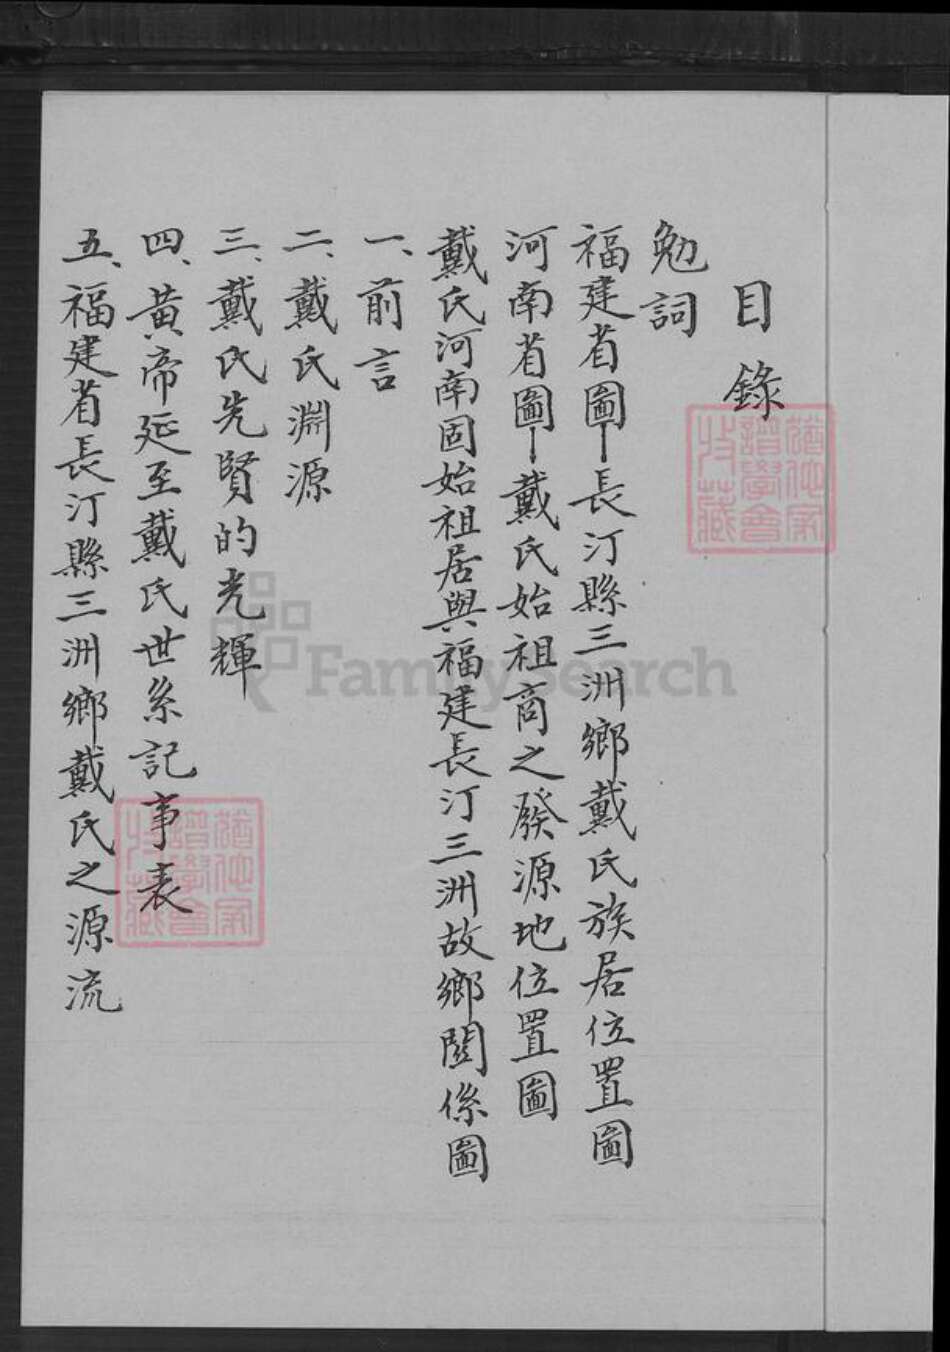 目錄
勉詞
福建省圖—長汀縣三洲鄉戴氏族居位置圖
河南省圖—戴氏始祖商之發源地位置圖
戴氏河南固始祖居與福建長汀三洲故鄉關係圖
一、前言
二、戴氏淵源
三、戴氏先賢的光輝
四、黃帝延至戴氏世系記事表
五、福建省長汀縣三洲鄉戴氏之源流
FamilySearch